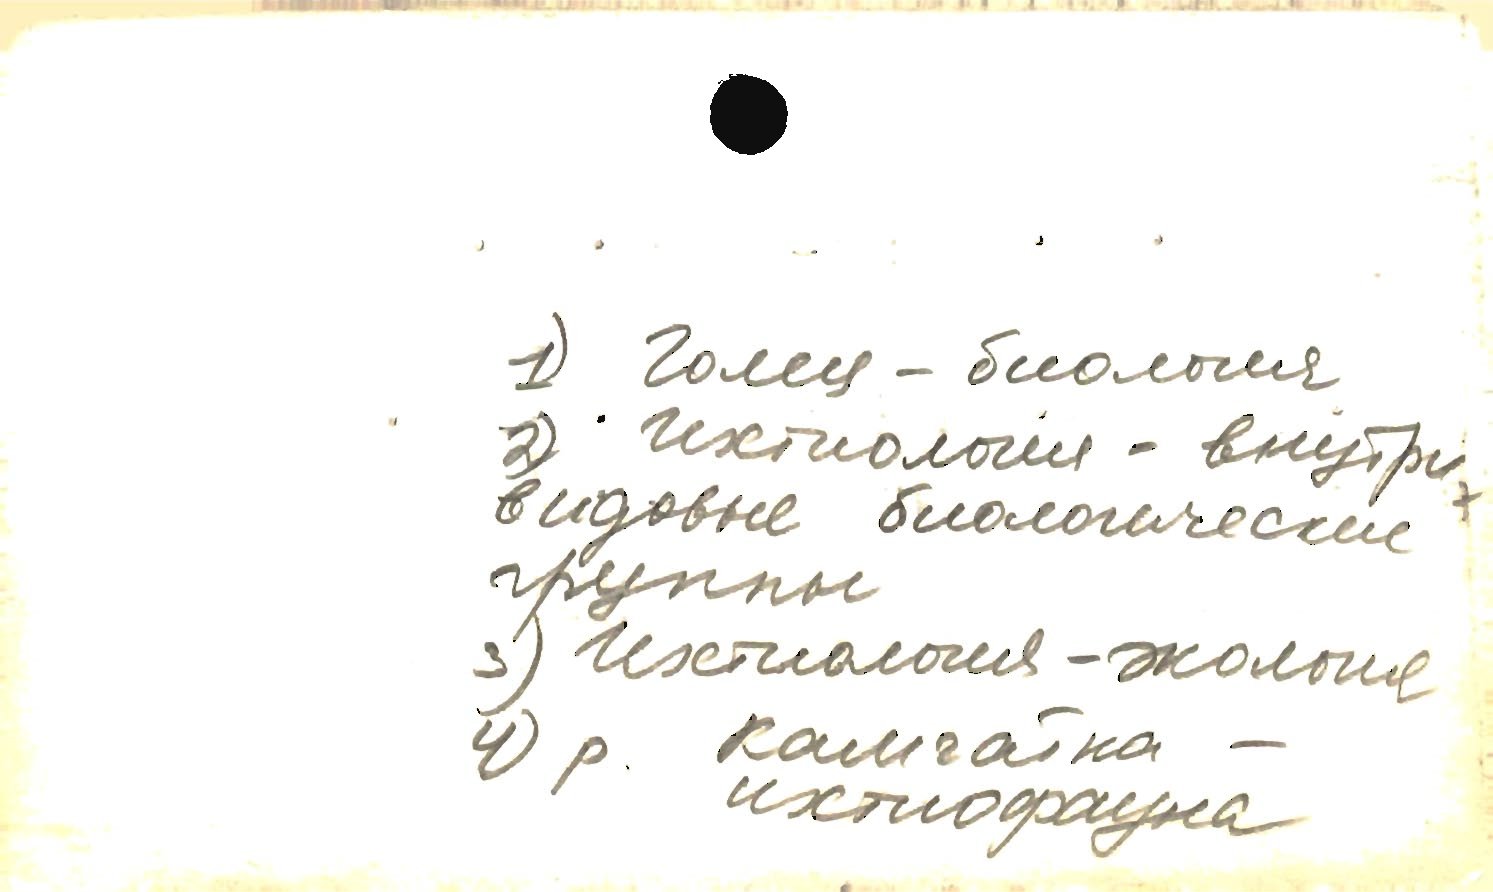 1) Голец - биология
2) Ихтиология - внутри
видовые биологические
группы
3) Ихтиология - экология
4) р. Камчатка -
ихтиофауна